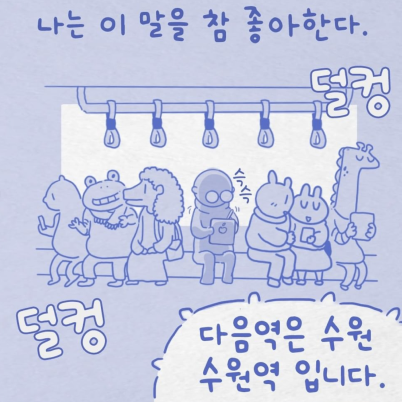 나는 이 말을 참 좋아한다.
덜컹
슥슥
덜컹
다음역은 수원
수원역 입니다.